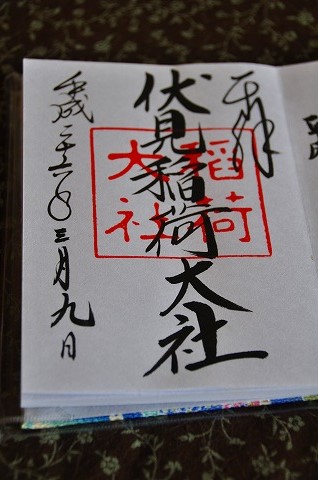 奉拝
伏見稲荷大社
稲荷
大社
平成二十六年三月九日